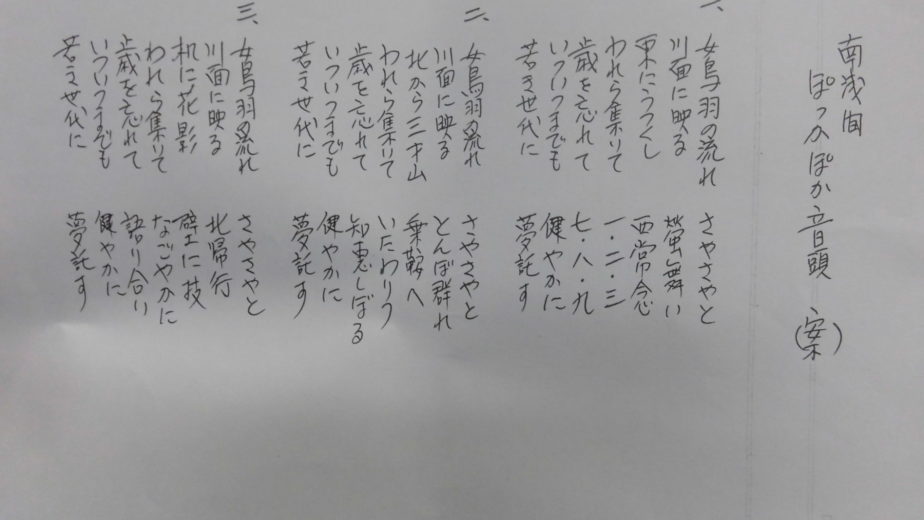 南浅間
ぽっかぽか音頭 (案)
一、
女鳥羽の流れ さやさやと
川面に映る 蛍舞い
東にうつくし 西常念
われら集いて 一・二・三
歳を忘れて 七・八・九
いついつまでも 健やかに
若き世代に 夢託す
二、
女鳥羽の流れ さやさやと
川面に映る とんぼ群れ
北から三才山 乗鞍へ
われら集いて いたわりつ
歳を忘れて 知恵しぼる
いついつまでも 健やかに
若き世代に 夢託す
三、
女鳥羽の流れ さやさやと
川面に映る 北帰行
机に花影 壁に技
われら集いて なごやかに
歳を忘れて 語り合い
いついつまでも 健やかに
若き世代に 夢託す